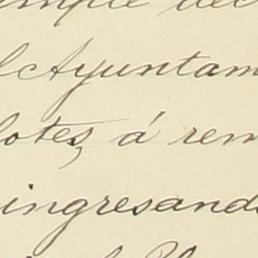 el Ayuntam
lotes, á rem
ingresand